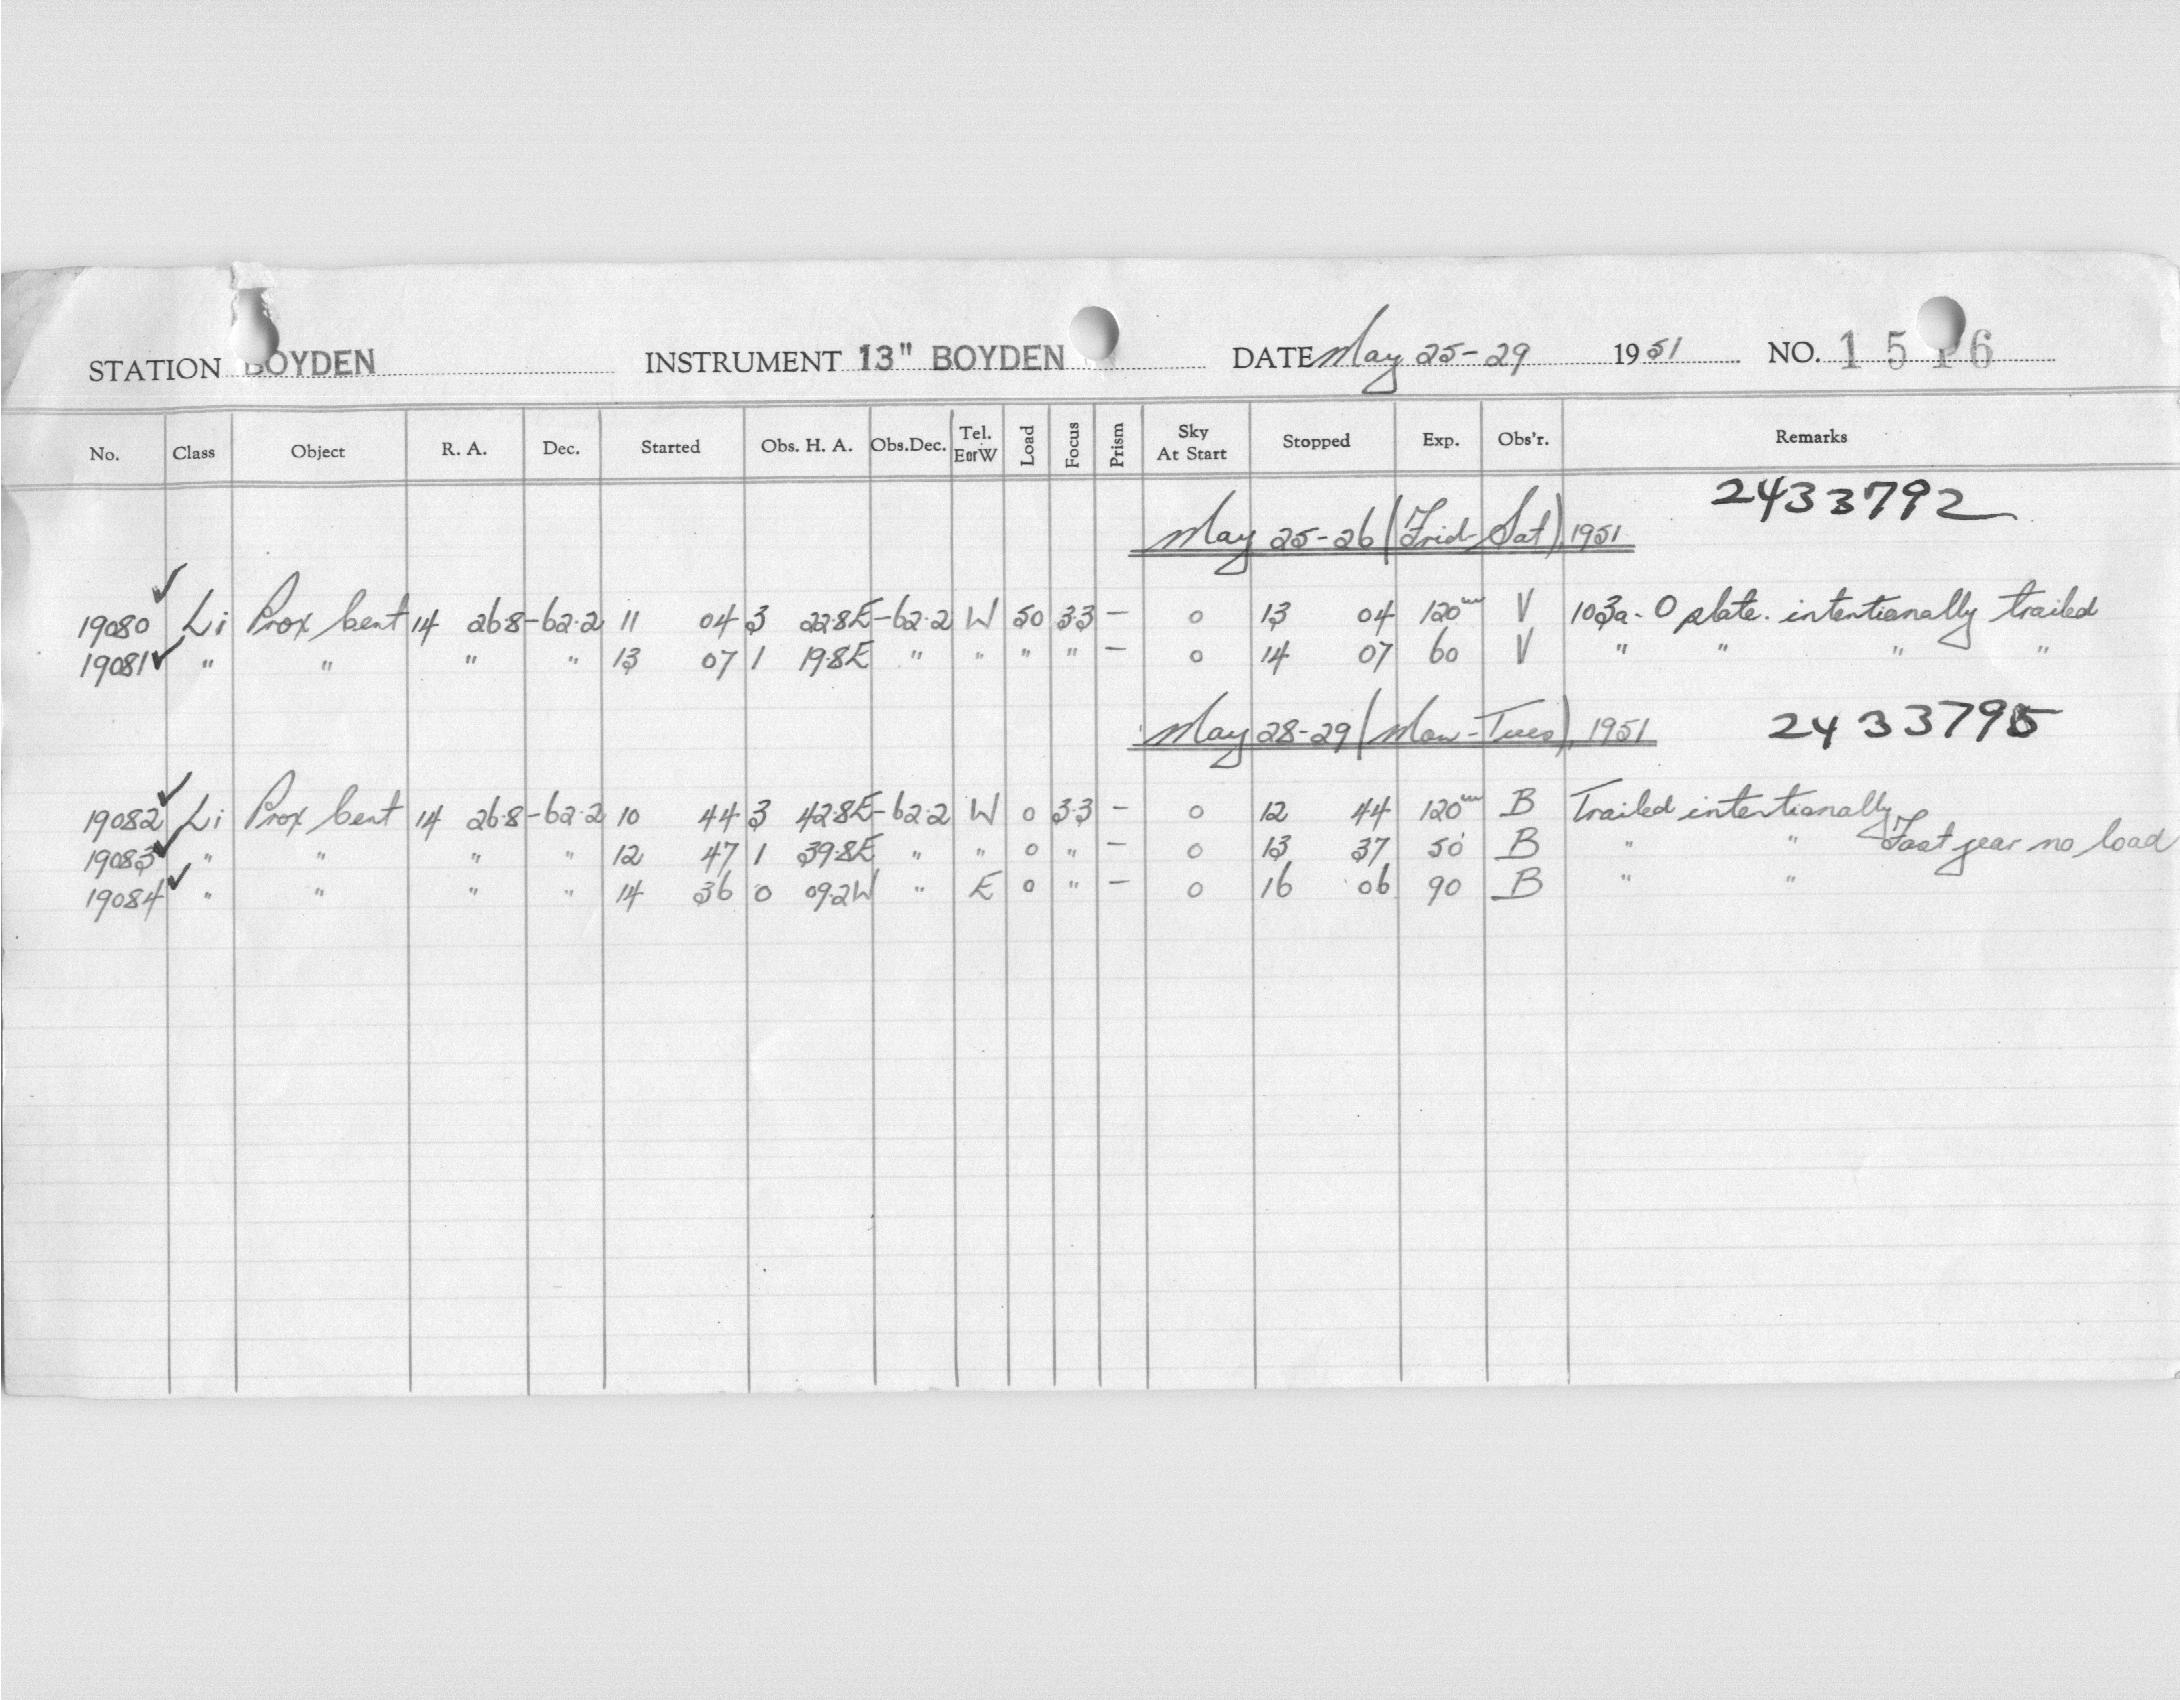 STATION BOYDEN INSTRUMENT 13" BOYDEN DATE May 25-29 1951 NO. 1516
No. Class Object R. A. Dec. Started Obs. H. A. Obs.Dec. Tel. E or W Load Focus Prism Sky At Start Stopped Exp. Obs'r. Remarks
2433792
May 25-26 (Frid-Sat), 1951
19080 ✓ Li Prox Cent 14 26.8 -62.2 11 04 3 22.8E -62.2 W 50 3.3 — 0 13 04 120m V 103a-O plate. intentionally trailed
19081 ✓ " " " " 13 07 1 19.8E " " " " — 0 14 07 60 V " " " "
May 28-29 (Mon-Tues), 1951 2433795
19082 ✓ Li Prox Cent 14 26.8 -62.2 10 44 3 42.8E -62.2 W 0 3.3 — 0 12 44 120m B Trailed intentionally
19083 ✓ " " " " 12 47 1 39.8E " " 0 " — 0 13 37 50 B " " Fast gear no load
19084 ✓ " " " " 14 36 0 09.2W " E 0 " — 0 16 06 90 B " "